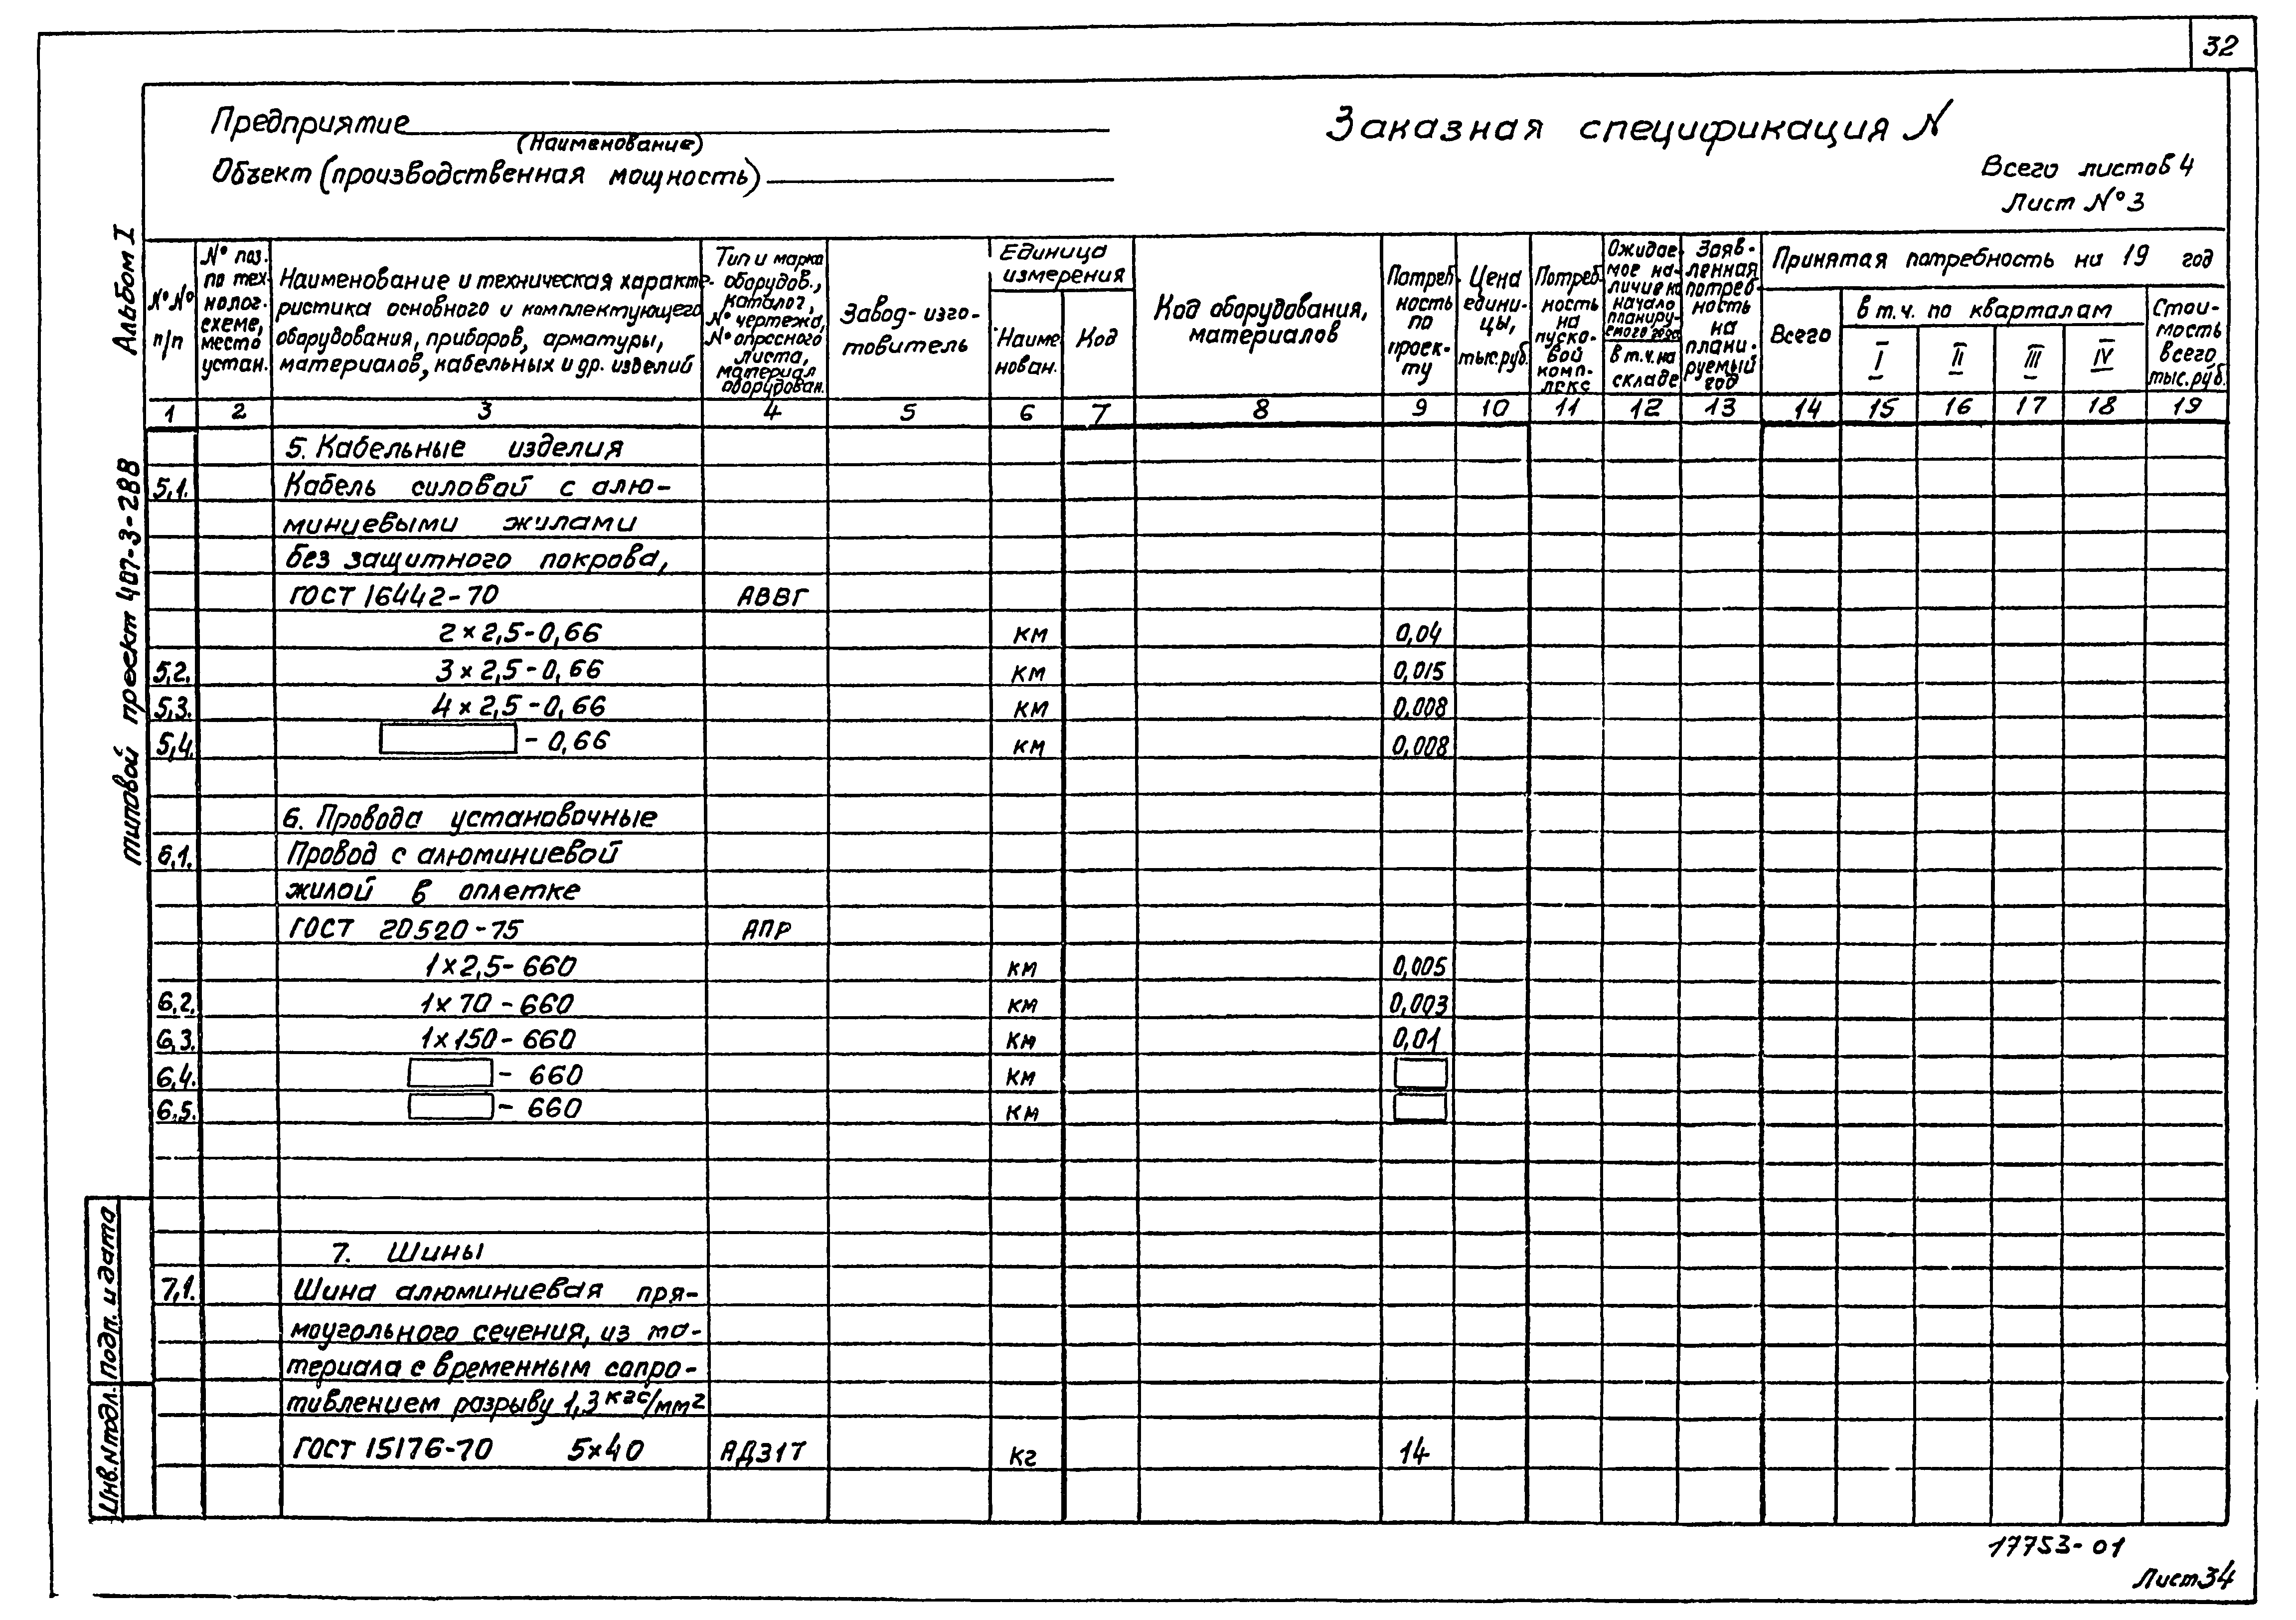 32
Предприятие
(Наименование)
Объект (производственная мощность)
Заказная спецификация N
Всего листов 4
Лист № 3
Альбом I
типовой проект 407-3-288
№№ п/п
№ поз. по тех-нолог. схеме, место устан.
Наименование и техническая характе-
ристика основного и комплектующего
оборудования, приборов, арматуры,
материалов, кабельных и др. изделий
Тип и марка
оборудов.,
каталог,
№ чертежа,
№ опросного
листа,
материал
оборудован.
Завод-изго-
товитель
Единица
измерения
Наиме
нован.
Код
Код оборудования,
материалов
Потреб
ность
по
проек-
ту
Цена
едини-
цы,
тыс.руб.
Потреб
ность
на
пуско-
вой
комп-
лекс
Ожидае-
мое на-
личие на
начало
планиру-
емого года
в т.ч. на
складе
Заяв-
ленная
потреб-
ность
на
плани-
руемый
год
Принятая потребность на 19 год
Всего
в т.ч. по кварталам
I II III IV
Стои-
мость
всего
тыс.руб.
1 2 3 4 5 6 7 8 9 10 11 12 13 14 15 16 17 18 19
5. Кабельные изделия
5,1. Кабель силовой с алю-
миниевыми жилами
без защитного покрова,
ГОСТ 16442-70 АВВГ
2×2,5-0,66 км 0,04
5,2. 3×2,5-0,66 км 0,015
5,3. 4×2,5-0,66 км 0,008
5,4. - 0,66 км 0,008
6. Провода установочные
6,1. Провод с алюминиевой
жилой в оплетке
ГОСТ 20520-75 АПР
1×2,5-660 км 0,005
6,2. 1×70-660 км 0,003
6,3. 1×150-660 км 0,01
6,4. - 660 км
6,5. - 660 км
7. Шины
7,1. Шина алюминиевая пря-
моугольного сечения, из ма-
териала с временным сопро-
тивлением разрыву 1,3 кгс/мм2
ГОСТ 15176-70 5×40 АД31Т кг 14
Инв.N подл. Подп. и дата
17753-01
Лист 34